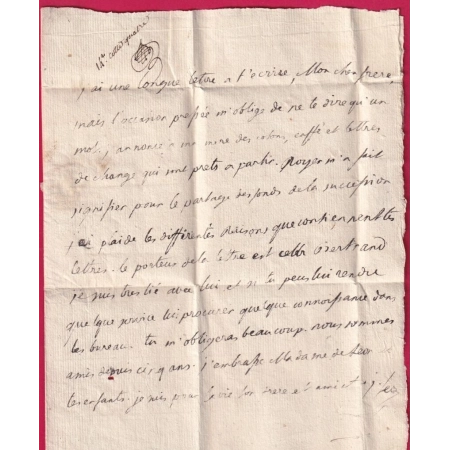 14e cotte quatre
j'ai une longue lettre a t'ecrire, Mon cher frere,
mais l'occasion presse m'oblige de ne te dire qu'un
mot, annonce a ma mere des cotons, caffé et lettres
de change qui sont prets a partir. Royer m'a fait
signifier pour le partage des fonds de la succession
j'ai plaidé les differentes raisons que contiennent tes
lettres. le porteur de la lettre est
je suis tres lié avec lui et si tu peus lui rendre
quelque service lui procurer quelque connoissance dans
les bureau. tu m'obligeras beaucoup. nous sommes
amis depuis ans. j'embrasse Madame de
tes enfants. je suis pour la vie ton frere et ami